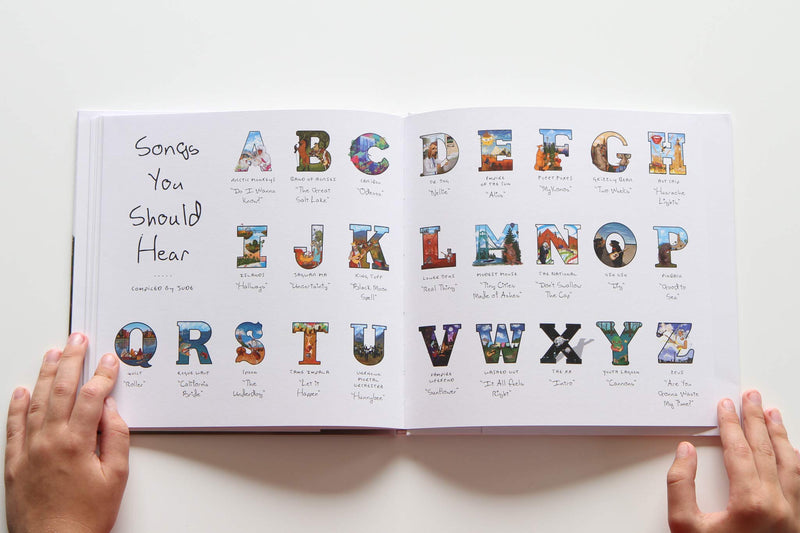 Songs
You
Should
Hear
.....
COMPILED BY JUDE
A
ARCTIC MONKEYS
"Do I Wanna
Know?"
B
BAND OF HORSES
"The Great
Salt Lake"
C
CARIBOU
"Odessa"
D
DR. DOG
"Nellie"
E
EMPIRE
OF THE SUN
"Alive"
F
FUZZY
"Mykonos"
G
GRIZZLY BEAR
"Two Weeks"
H
HOT CHIP
"Huarache
Lights"
I
ISLANDS
"Hallways"
J
JAGWAR MA
"Uncertainty"
K
KING TUFF
"Black Moon
Spell"
L
LOWER DENS
"Real Thing"
M
MODEST MOUSE
"Tiny Cities
Made of Ashes"
N
THE NATIONAL
"Don't Swallow
The Cap"
O
"Dig"
P
PHOENIX
"Goodbye
Sea"
Q
QUILT
"Roller"
R
ROGUE WAVE
"California
Bride"
S
SPOON
"The
Underdog"
T
TAME IMPALA
"Let it
Happen"
U
UNKNOWN
MORTAL
ORCHESTRA
"Hunnybee"
V
VAMPIRE
WEEKEND
"Sunflower"
W
WASHED OUT
"It All Feels
Right"
X
THE XX
"Intro"
Y
YOUTH LAGOON
"Cannons"
Z
ZEUS
"Are You
Gonna Waste
My Time?"